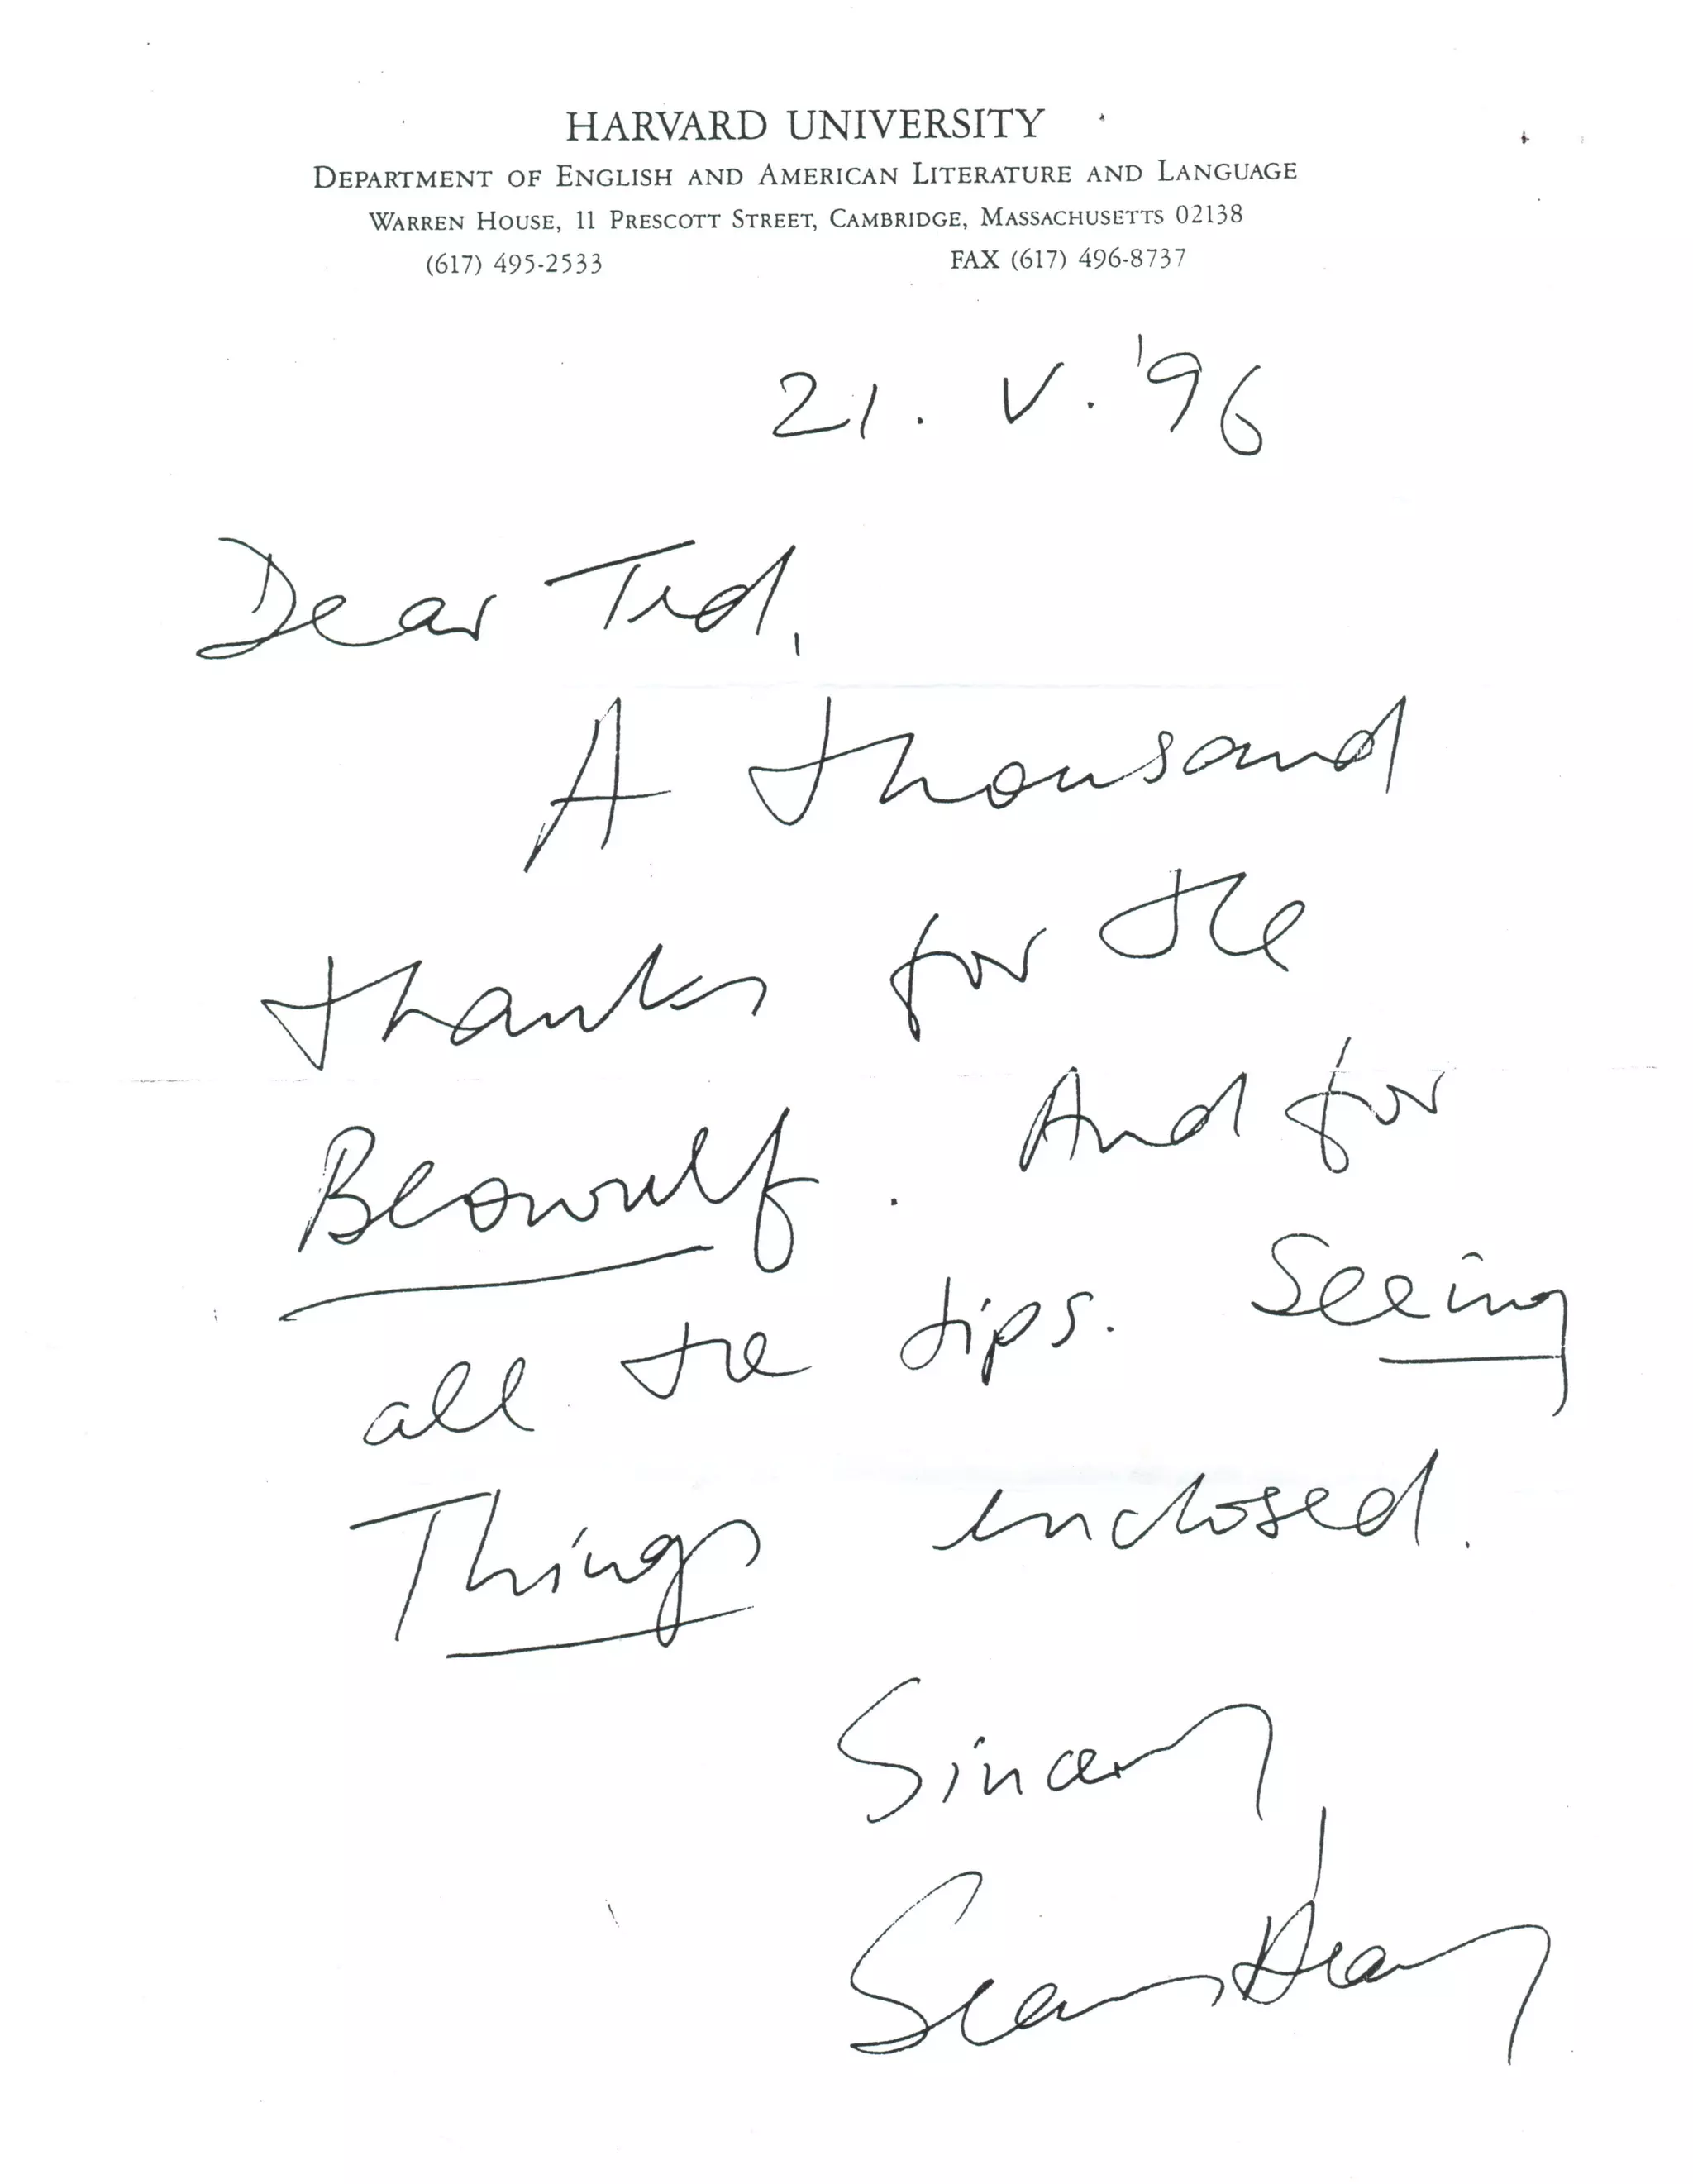 HARVARD UNIVERSITY
DEPARTMENT OF ENGLISH AND AMERICAN LITERATURE AND LANGUAGE
WARREN HOUSE, 11 PRESCOTT STREET, CAMBRIDGE, MASSACHUSETTS 02138
(617) 495-2533 FAX (617) 496-8737
21. V. '96
Dear Ted,
A thousand
thanks for the
Beowulf. And for
all the tips. Seeing
Things enclosed.
Sincerely
Seamus Heaney